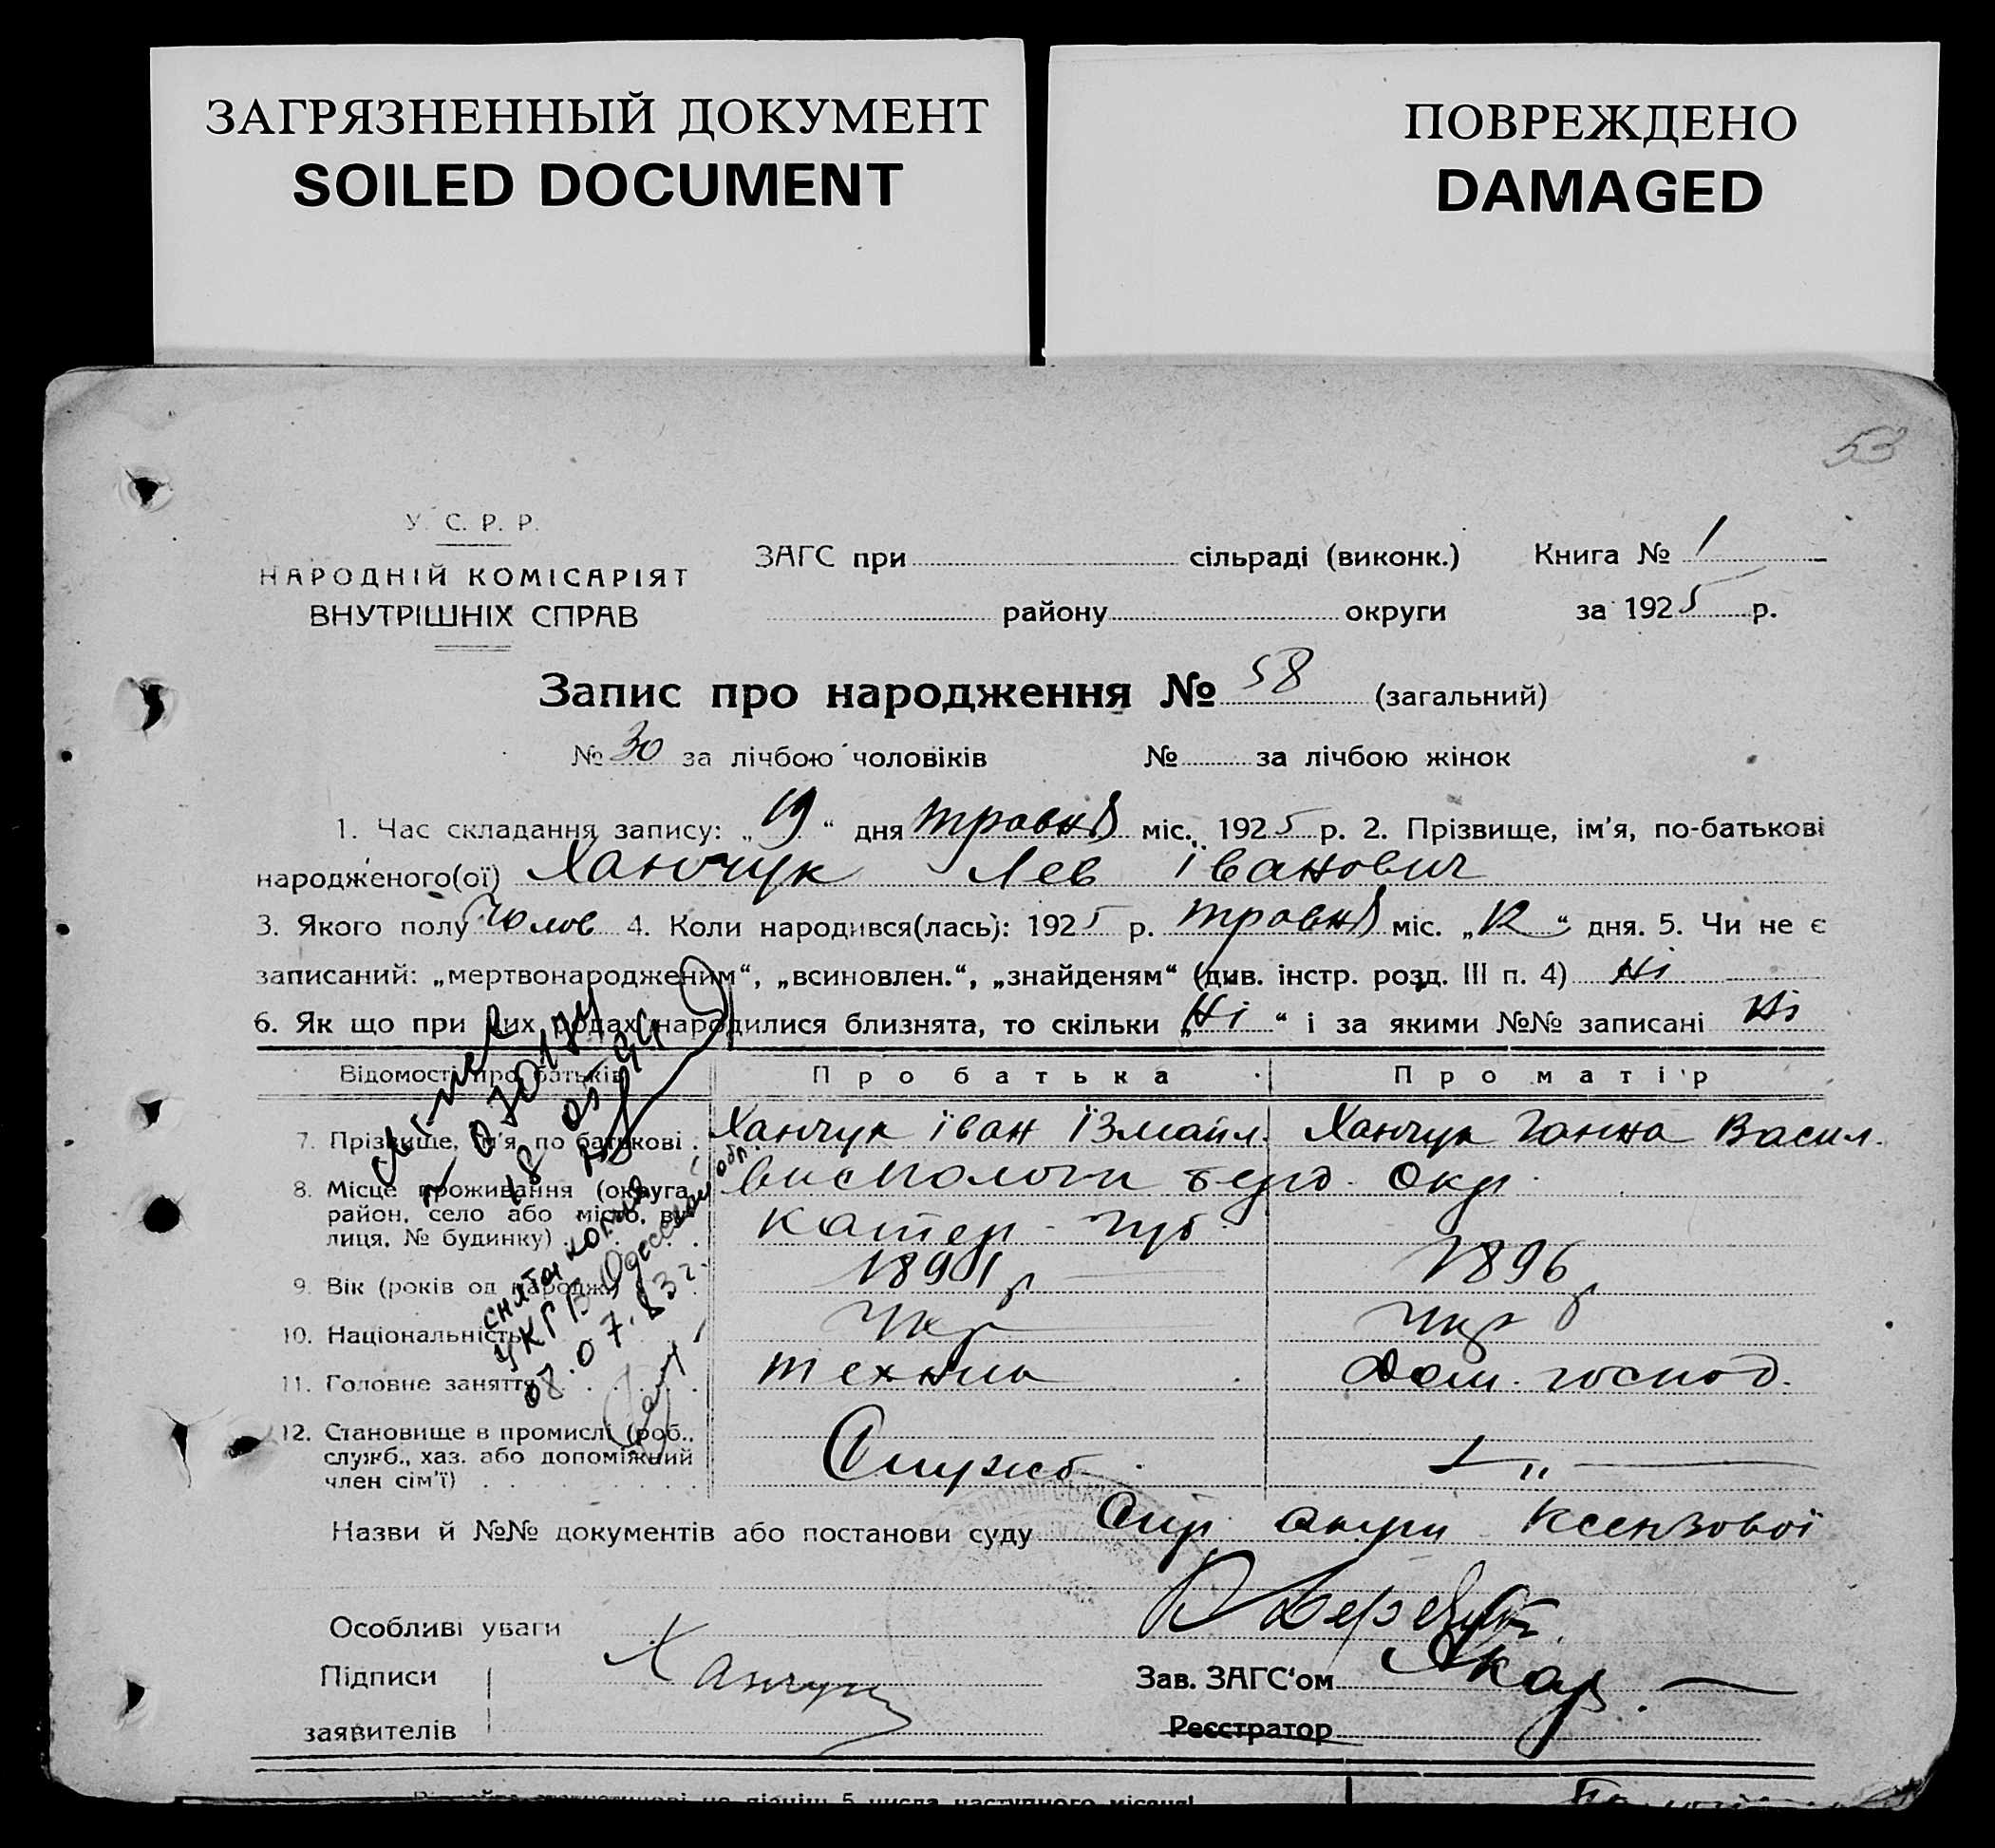 ЗАГРЯЗНЕННЫЙ ДОКУМЕНТ
SOILED DOCUMENT
ПОВРЕЖДЕНО
DAMAGED
53
У. С. Р. Р.
НАРОДНІЙ КОМІСАРІЯТ
ВНУТРІШНІХ СПРАВ
ЗАГС при сільраді (виконк.)
району округи
Книга № 1
за 1925 р.
Запис про народження № 58 (загальний)
№ 30 за лічбою чоловіків № за лічбою жінок
1. Час складання запису: „19“ дня травня міс. 1925 р. 2. Прізвище, ім'я, по-батькові
народженого(ої) Ханчук Лев Іванович
3. Якого полу чолов 4. Коли народився(лась): 1925 р. травня міс. „12“ дня. 5. Чи не є
записаний: „мертвонародженим“, „всиновлен.“, „знайденям“ (див. інстр. розд. III п. 4) Ні
6. Як що при цих родах народилися близнята, то скільки „Ні“ і за якими №№ записані Ні
Відомості про батьків Про батька Про матір
7. Прізвище, ім'я, по батькові Ханчук Іван Ізмаїл. Ханчук Ганна Васил.
8. Місце проживання (округа, район, село або місто, вулиця, № будинку) берд. окр.
Катер. губ.
9. Вік (років од народж.) 1891 р 1896 р
10. Національність Укр Укр
11. Головне заняття технік Дом. господ.
12. Становище в промислі (роб.,
служб., хаз. або допоміжний
член сім'ї) Служб. „
снята копия
УКГБ Одесской обл.
07.83 г.
Назви й №№ документів або постанови суду
Особливі уваги
Підписи
заявителів Ханчук
Зав. ЗАГС'ом
Реєстратор
5 числа наступного місяця!